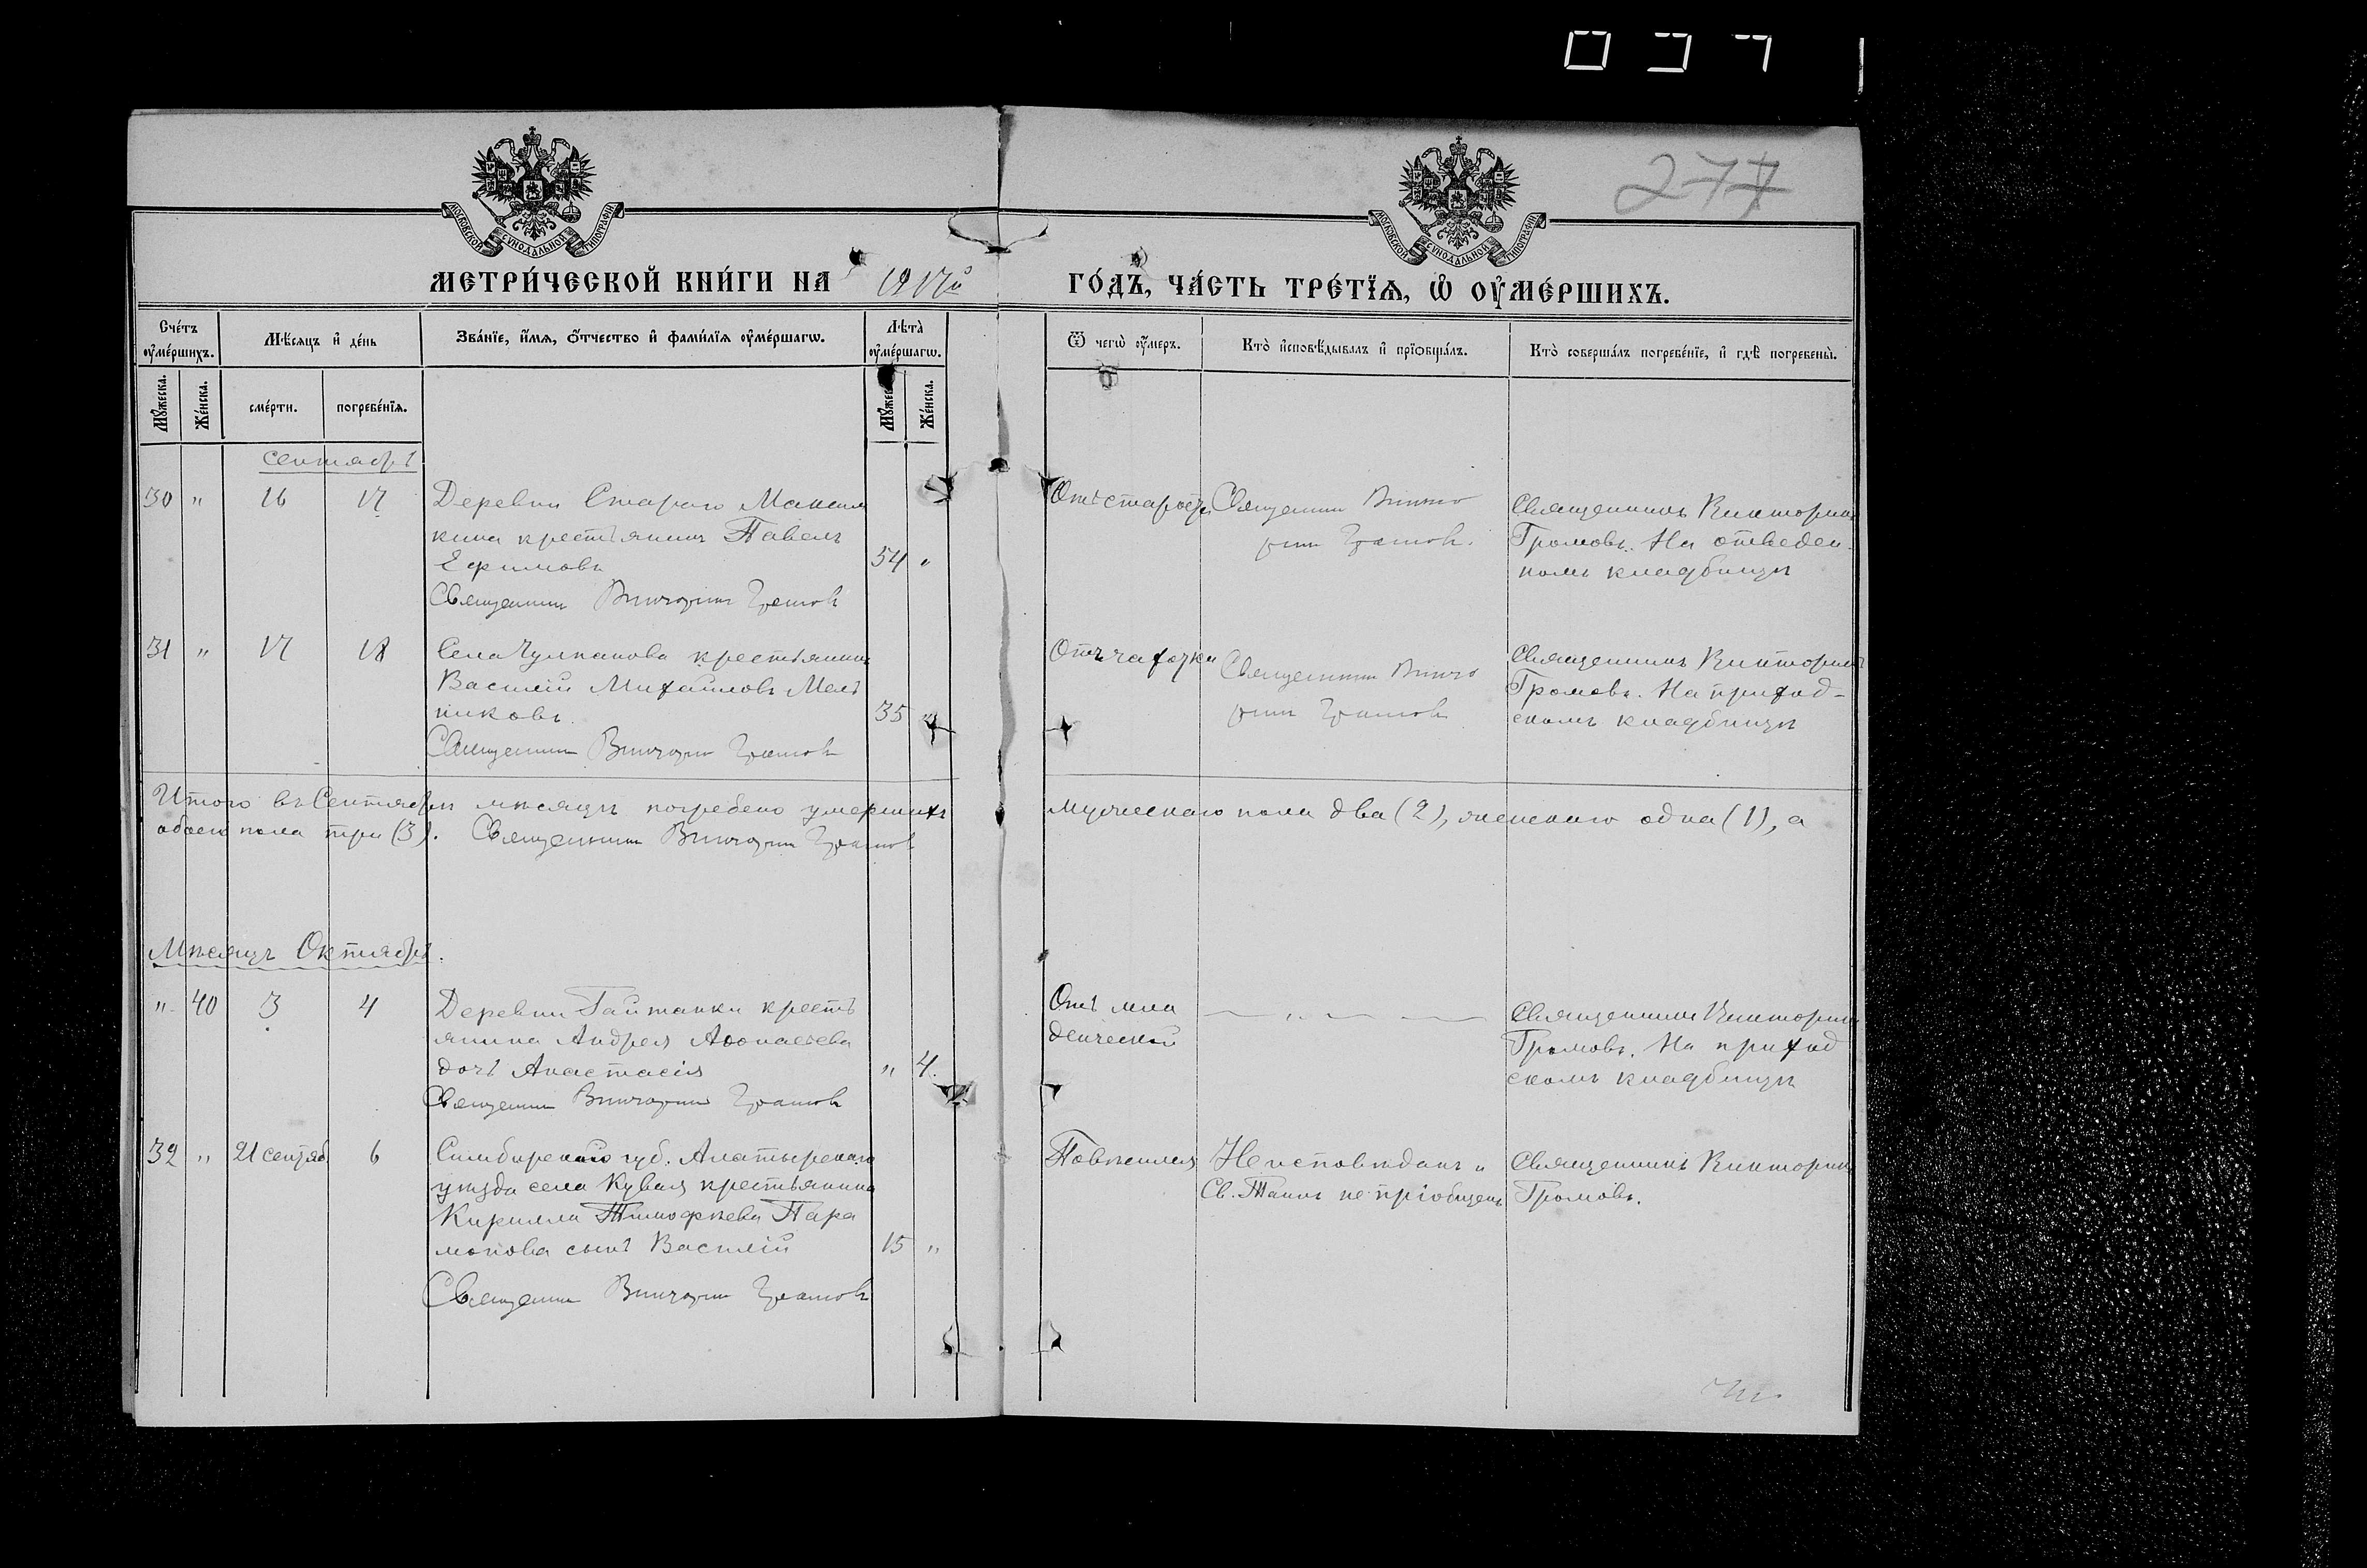 037
277
МОСКОВСКОЙ СУНОДАЛЬНОЙ ТИПОГРАФІИ
МОСКОВСКОЙ СУНОДАЛЬНОЙ ТИПОГРАФІИ
МЕТРИ́ЧЕСКОЙ КНИ́ГИ НА 1917й ГО́ДЪ, ЧА́СТЬ ТРЕ́ТЇѦ, Ѡ ОУ҆МЕ́РШИХЪ.
Сче́тъ оу҆ме́ршихъ.
Мѣ́сяцъ и҆ де́нь
Зва́нїе, и҆́мѧ, ѻ҆́тчество и҆ фами́лїѧ оу҆ме́ршагѡ.
Лѣ́та оу҆ме́ршагѡ.
Ѿ чегѡ̀ оу҆́меръ.
Кто̀ и҆сповѣ́дывалъ и҆ прїѻбща́лъ.
Кто̀ соверша́лъ погребе́нїе, и҆ гдѣ̀ погребены̀.
Мꙋ́жеска.
Же́нска.
сме́рти.
погребе́нїѧ.
Мꙋ́жеска.
Же́нска.
сентябрь
30 " 16 17 Деревни Стараго Максим
кина крестьянинъ Павелъ
Ефимовъ 54 "
Священникъ Викторинъ Громовъ
Отъ старости
Священникъ Викто
ринъ Громовъ.
Священникъ Викторинъ
Громовъ. На отведен-
номъ кладбищѣ
31 " 17 18 Села Чулпанова крестьянинъ
Василій Михайловъ Мель
никовъ. 35 "
Священникъ Викторинъ Громовъ
Отъ чахотки
Священникъ Викто
ринъ Громовъ
Священникъ Викторинъ
Громовъ. На приход-
скомъ кладбищѣ
Итого въ Сентябрѣ мѣсяцѣ погребено умершихъ мужескаго пола два (2), женскаго одна (1), а
обоего пола три (3). Священникъ Викторинъ Громовъ
Мѣсяцъ Октябрь.
" 40 3 4 Деревни Гайтанки кресть
янина Андрея Аѳонасьева
дочь Анастасія " 4.
Священникъ Викторинъ Громовъ
Отъ мла
денческой
Священникъ Викторинъ
Громовъ. На приход
скомъ кладбищѣ
32 " 21 сентяб 6 Симбирской губ. Алатырскаго
уѣзда села Кувая крестьянина
Кирилла Тимофѣева Пара
монова сынъ Василій 15 "
Священникъ Викторинъ Громовъ
Повѣсился
Не исповѣданъ и
Св. Таинъ не пріобщенъ
Священникъ Викторинъ
Громовъ.